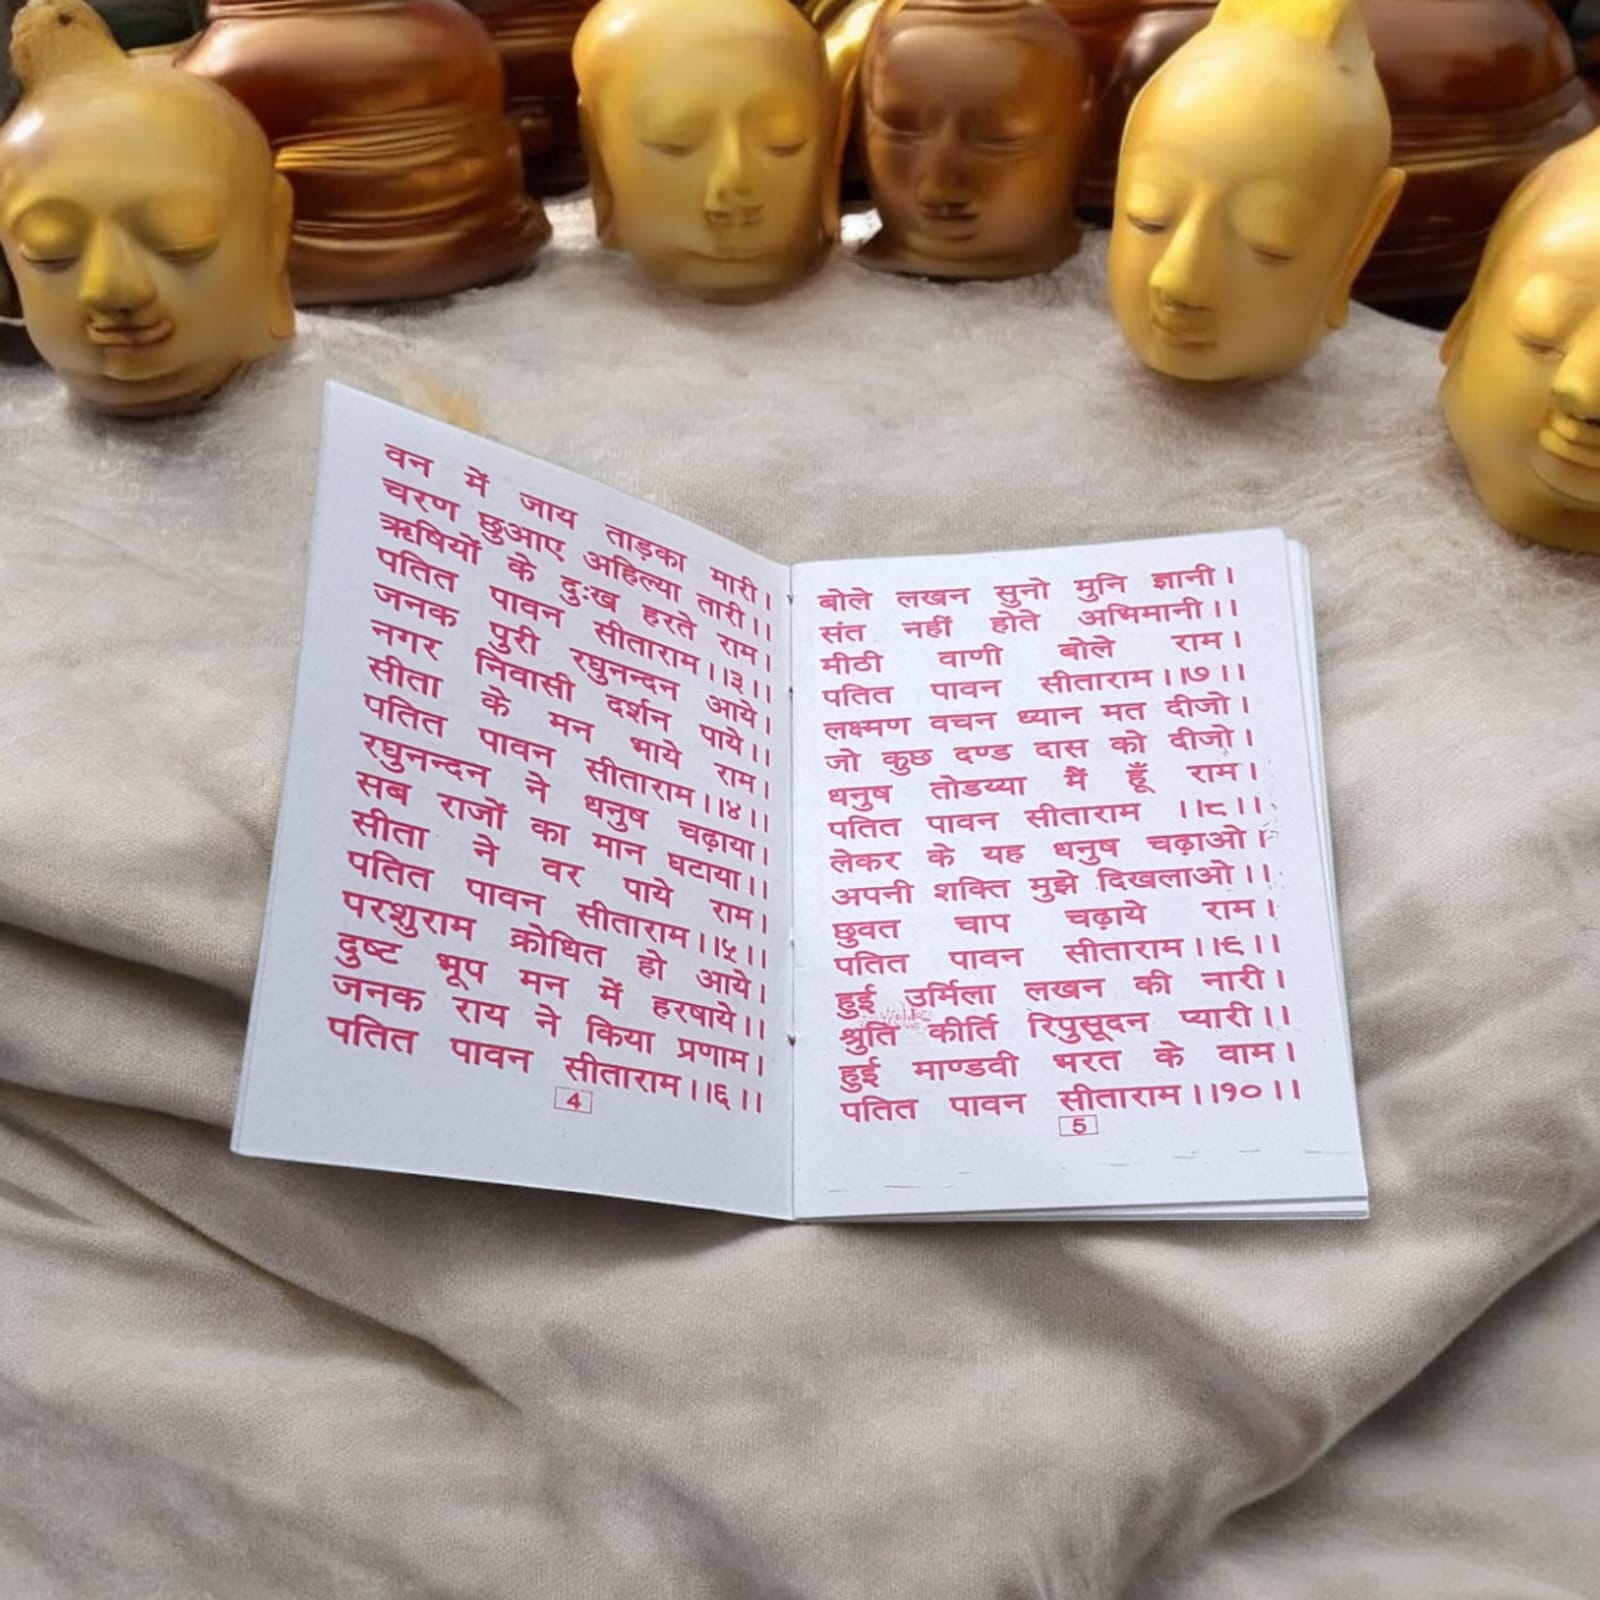 वन में जाय ताड़का मारी।
चरण छुआए अहिल्या तारी।।
ऋषियों के दुःख हरते राम।
पतित पावन सीताराम।।३।।
जनक पुरी रघुनन्दन आये।
नगर निवासी दर्शन पाये।।
सीता के मन भाये राम।
पतित पावन सीताराम।।४।।
रघुनन्दन ने धनुष चढ़ाया।
सब राजों का मान घटाया।।
सीता ने वर पाये राम।
पतित पावन सीताराम।।५।।
परशुराम क्रोधित हो आये।
दुष्ट भूप मन में हरषाये।।
जनक राय ने किया प्रणाम।
पतित पावन सीताराम।।६।।
4
बोले लखन सुनो मुनि ज्ञानी।
संत नहीं होते अभिमानी।।
मीठी वाणी बोले राम।
पतित पावन सीताराम।।७।।
लक्ष्मण वचन ध्यान मत दीजो।
जो कुछ दण्ड दास को दीजो।
धनुष तोडय्या मैं हूँ राम।
पतित पावन सीताराम ।।८।।
लेकर के यह धनुष चढ़ाओ।
अपनी शक्ति मुझे दिखलाओ।।
छुवत चाप चढ़ाये राम।
पतित पावन सीताराम।।९।।
हुई उर्मिला लखन की नारी।
श्रुति कीर्ति रिपुसूदन प्यारी।।
हुई माण्डवी भरत के वाम।
पतित पावन सीताराम।।१०।।
5